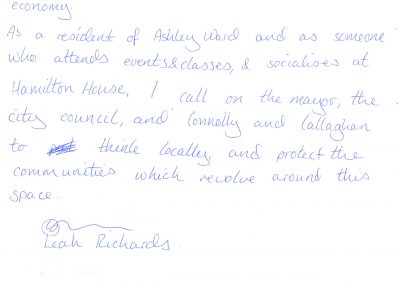 economy.
As a resident of Ashley Ward and as someone
who attends events & classes, & socialises at
Hamilton House, I call on the mayor, the
city council, and Connolly and Callaghan
to think locally and protect the
communities which revolve around this
space.
Leah Richards